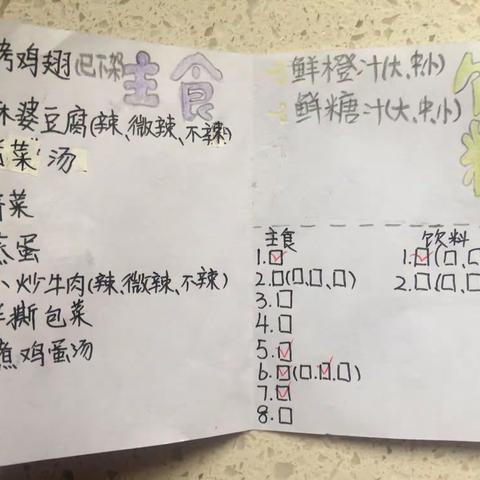 主食
烤鸡翅(已下架
麻婆豆腐(辣、微辣、不辣)
菜汤
青菜
蒸蛋
小炒牛肉(辣、微辣、不辣)
手撕包菜
煮鸡蛋汤
饮料
鲜橙汁(大、中、小)
鲜糖汁(大、中、小)
主食
1.☑
2.□(□、□、□)
3.□
4.□
5.☑
6.☑(□、☑、□)
7.☑
8.□
饮料
1.☑(□、□
2.□(□、□